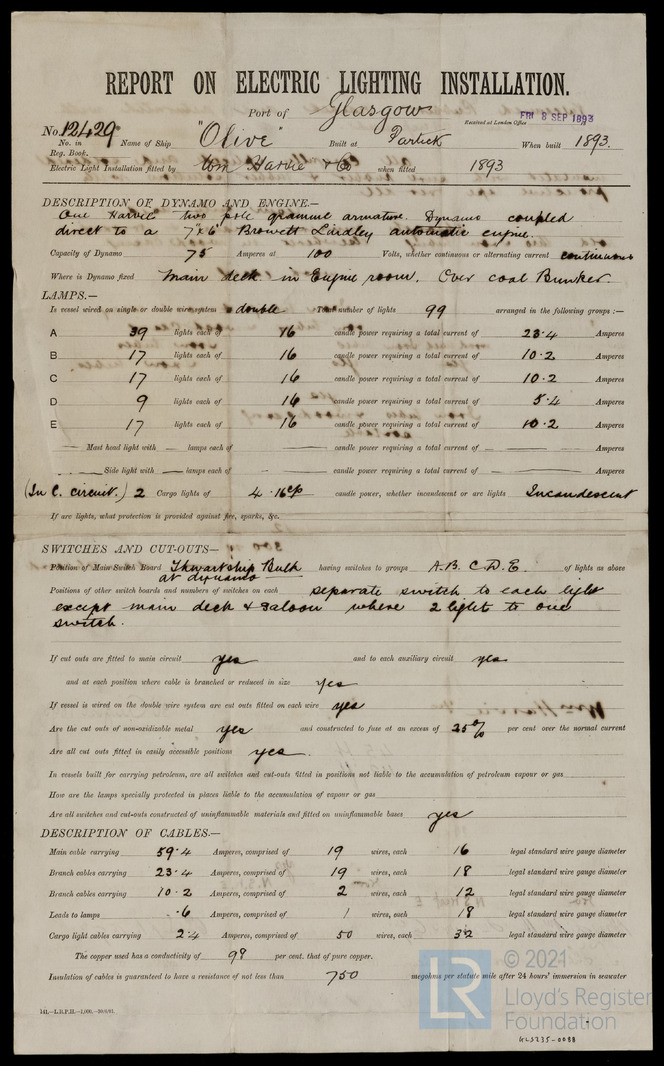 REPORT ON ELECTRIC LIGHTING INSTALLATION.
Port of Glasgow
Received at London Office FRI 8 SEP 1893
No. 12429
No. in Reg. Book. Name of Ship "Olive" Built at Partick When built 1893.
Electric Light Installation fitted by Wm Harvie & Co when fitted 1893
DESCRIPTION OF DYNAMO AND ENGINE.—
One Harvie two pole gramme armature. Dynamo coupled
direct to a 7"x6" Browett Lindley automatic engine.
Capacity of Dynamo 75 Amperes at 100 Volts, whether continuous or alternating current continuous
Where is Dynamo fixed Main deck in Engine room. Over coal Bunker.
LAMPS.—
Is vessel wired on single or double wire system double Total number of lights 99 arranged in the following groups :—
A 39 lights each of 16 candle power requiring a total current of 23.4 Amperes
B 17 lights each of 16 candle power requiring a total current of 10.2 Amperes
C 17 lights each of 16 candle power requiring a total current of 10.2 Amperes
D 9 lights each of 16 candle power requiring a total current of 5.4 Amperes
E 17 lights each of 16 candle power requiring a total current of 10.2 Amperes
— Mast head light with — lamps each of — candle power requiring a total current of — Amperes
— Side light with — lamps each of — candle power requiring a total current of — Amperes
(In C. circuit.) 2 Cargo lights of 4.16cp candle power, whether incandescent or arc lights Incandescent
If arc lights, what protection is provided against fire, sparks, &c.
SWITCHES AND CUT-OUTS—
Position of Main Switch Board Thwartship Bulk having switches to groups A.B.C.D.E. of lights as above
at dynamo
Positions of other switch boards and numbers of switches on each separate switch to each light
except main deck & saloon where 2 light to one
switch.
If cut outs are fitted to main circuit yes and to each auxiliary circuit yes
and at each position where cable is branched or reduced in size yes
If vessel is wired on the double wire system are cut outs fitted on each wire yes
Are the cut outs of non-oxidizable metal yes and constructed to fuse at an excess of 25% per cent over the normal current
Are all cut outs fitted in easily accessible positions yes.
In vessels built for carrying petroleum, are all switches and cut-outs fitted in positions not liable to the accumulation of petroleum vapour or gas
How are the lamps specially protected in places liable to the accumulation of vapour or gas
Are all switches and cut-outs constructed of uninflammable materials and fitted on uninflammable bases yes
DESCRIPTION OF CABLES.—
Main cable carrying 59.4 Amperes, comprised of 19 wires, each 16 legal standard wire gauge diameter
Branch cables carrying 23.4 Amperes, comprised of 19 wires, each 18 legal standard wire gauge diameter
Branch cables carrying 10.2 Amperes, comprised of 2 wires, each 12 legal standard wire gauge diameter
Leads to lamps .6 Amperes, comprised of 1 wires, each 18 legal standard wire gauge diameter
Cargo light cables carrying 2.4 Amperes, comprised of 50 wires, each 32 legal standard wire gauge diameter
The copper used has a conductivity of 98 per cent. that of pure copper.
Insulation of cables is guaranteed to have a resistance of not less than 750 megohms per statute mile after 24 hours' immersion in seawater
LR
© 2021
Lloyd's Register
Foundation
GLS235-0088